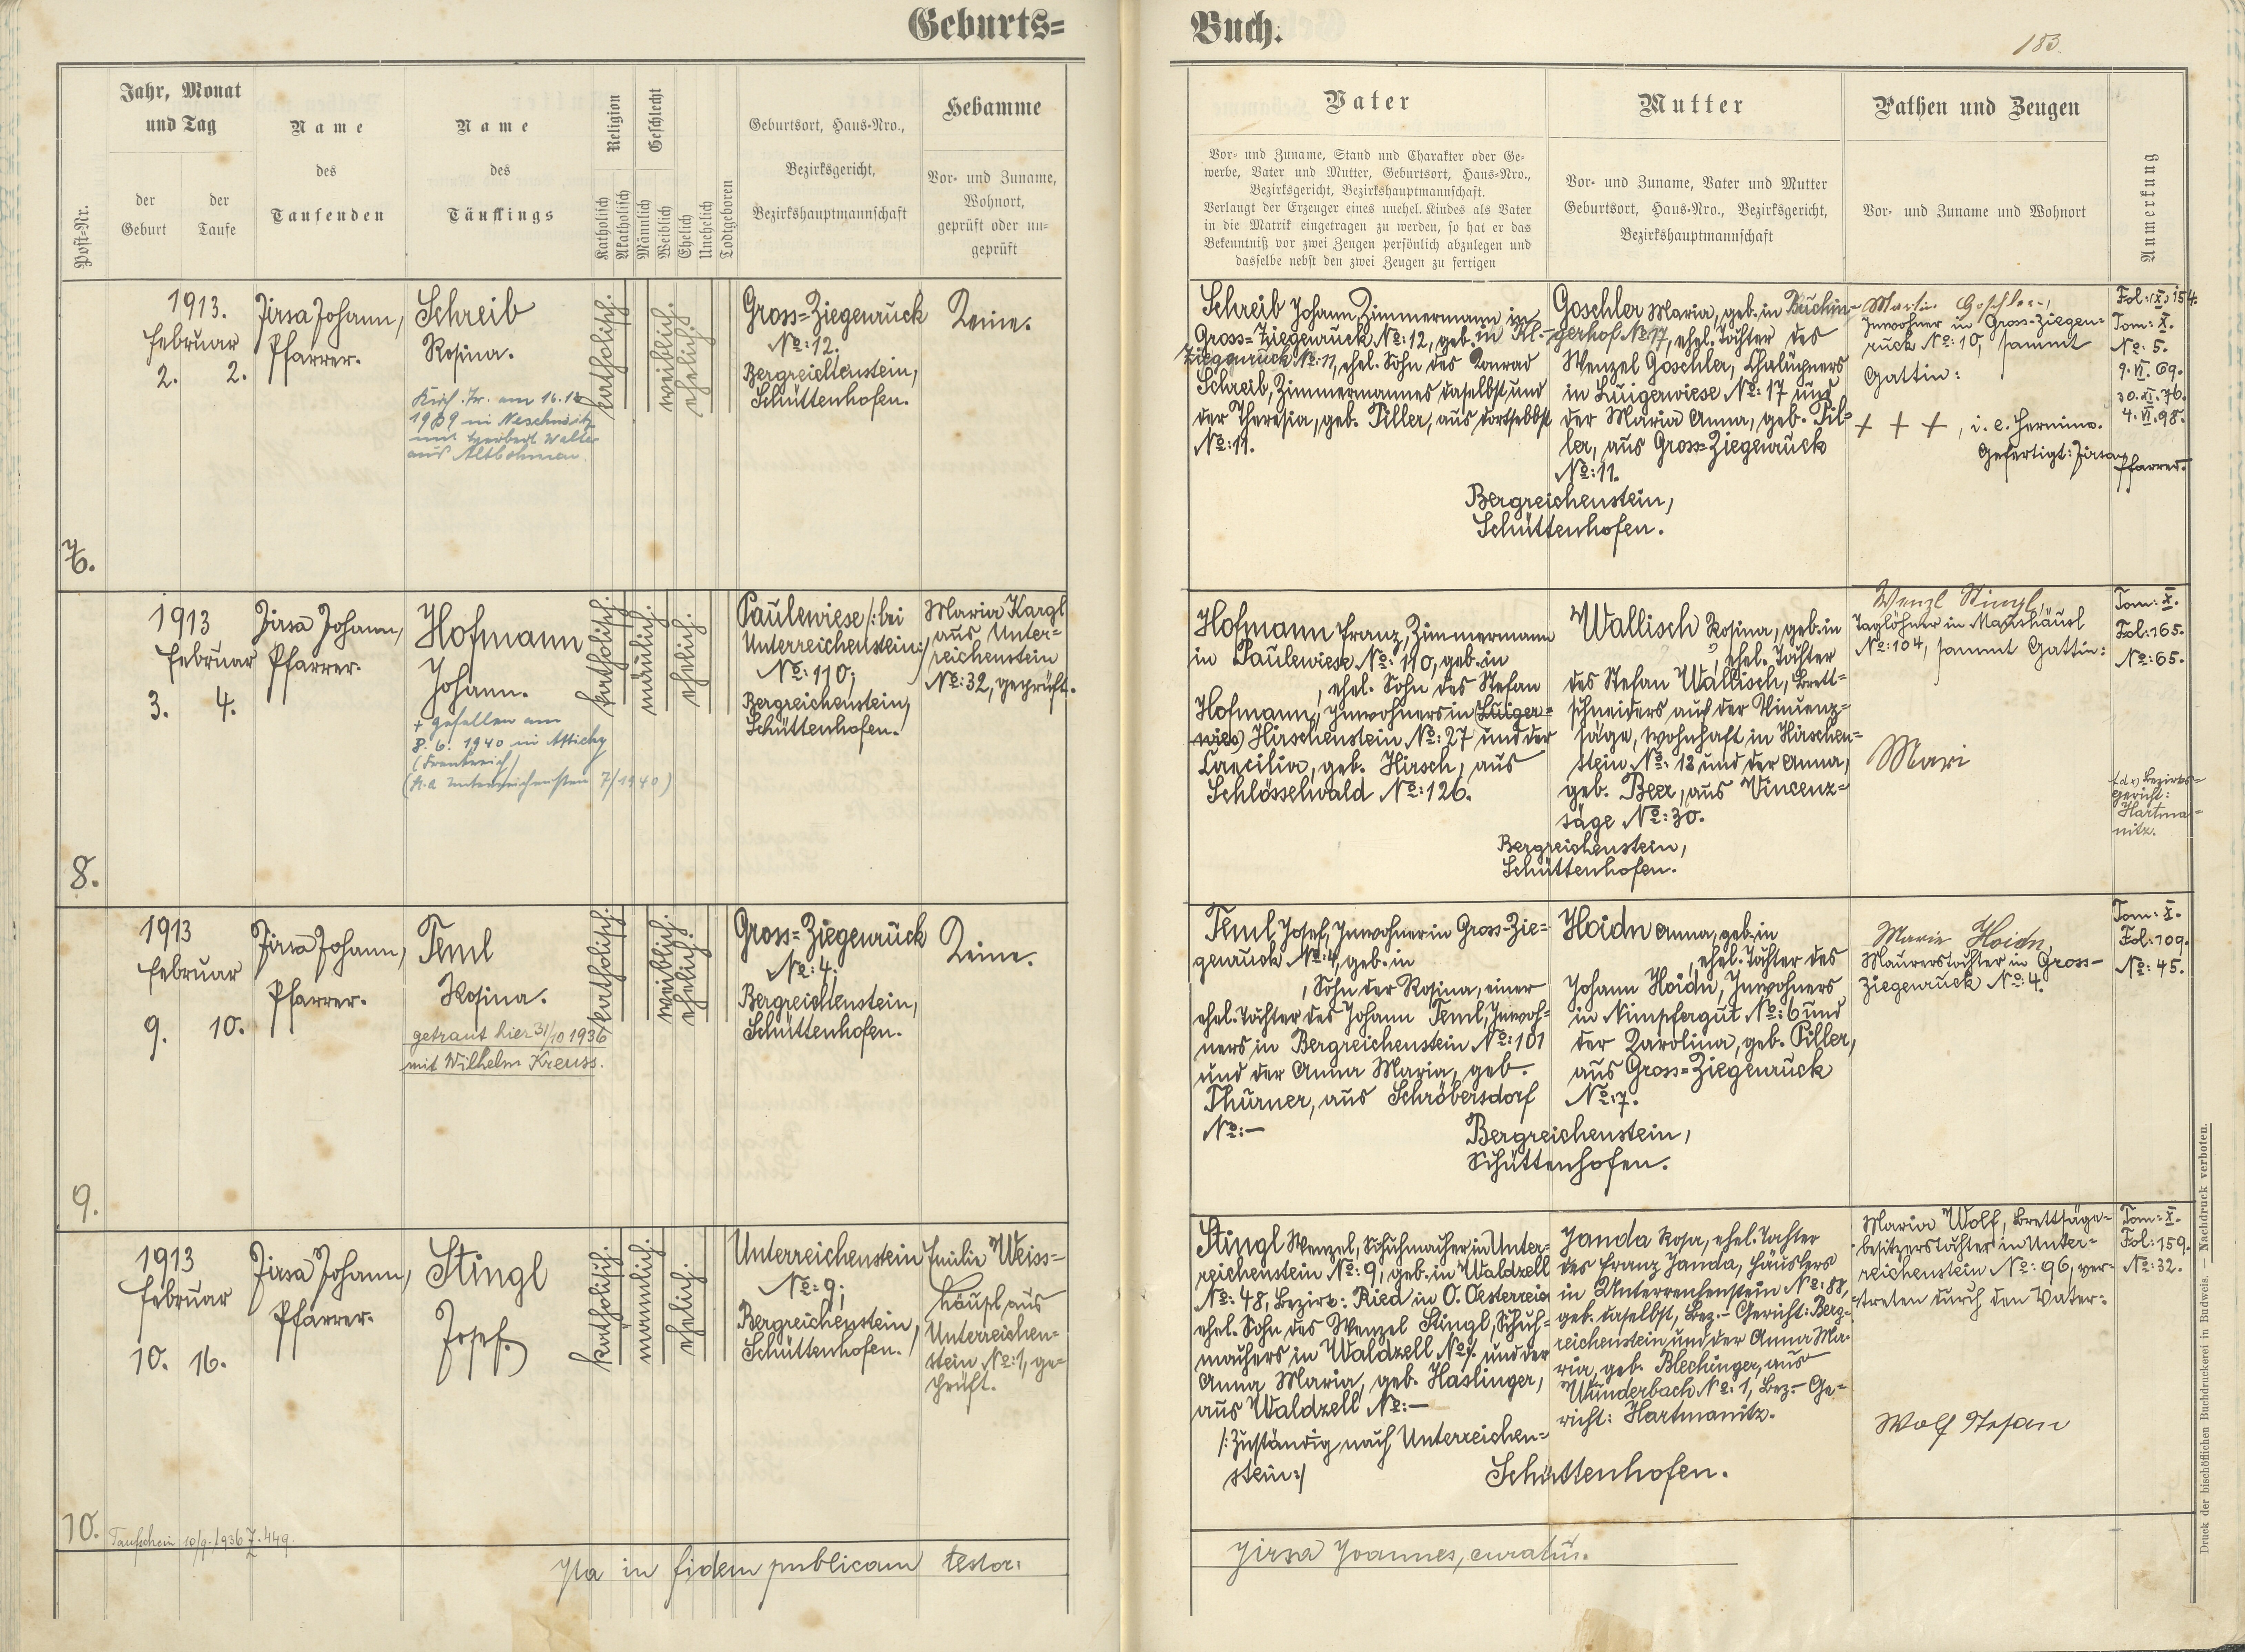 Geburts=
Buch.
183.
Post-Nr.
Jahr, Monat
und Tag
der
Geburt
der
Taufe
Name
des
Taufenden
Name
des
Täuflings
Religion
Katholisch
Akatholisch
Geschlecht
Männlich
Weiblich
Ehelich
Unehelich
Todtgeboren
Geburtsort, Haus-Nro.,
Bezirksgericht,
Bezirkshauptmannschaft
Hebamme
Vor- und Zuname,
Wohnort,
geprüft oder un-
geprüft
Vater
Vor- und Zuname, Stand und Charakter oder Ge-
werbe, Vater und Mutter, Geburtsort, Haus-Nro.,
Bezirksgericht, Bezirkshauptmannschaft.
Verlangt der Erzeuger eines unehel. Kindes als Vater
in die Matrik eingetragen zu werden, so hat er das
Bekenntniß vor zwei Zeugen persönlich abzulegen und
dasselbe nebst den zwei Zeugen zu fertigen
Mutter
Vor- und Zuname, Vater und Mutter
Geburtsort, Haus-Nro., Bezirksgericht,
Bezirkshauptmannschaft
Pathen und Zeugen
Vor- und Zuname und Wohnort
Anmerkung
7.
1913.
Februar
2. 2.
Jirsa Johann,
Pfarrer.
Schreib
Rosina.
1939 in Neschwitz
Walter
aus Altbohmen.
katholisch.
weiblich.
ehelich.
Gross=Ziegenruck
No: 12.
Bergreichenstein,
Schüttenhofen.
Keine.
Schreib Johann, Zimmermann in
Gross=Ziegenruck No: 12, geb. in Kl.-
Ziegenruck No: 11, ehel. Sohn des Konrad
Schreib, Zimmermannes daselbst und
der Theresia, geb. Piller, aus dortselbst
No: 11.
Goschler Maria, geb. in Buchin-
gerhof No: 17, ehel. Tochter des
Wenzel Goschler, Chalupners
in Luigerwiese No: 17 und
der Maria Anna, geb. Pil=
ler, aus Gross=Ziegenruck
No: 11.
Bergreichenstein,
Schüttenhofen.
Martin Goschler,
Inwohner in Gross-Ziegen=
ruck No: 10, sammt
Gattin:
+ + +, i. e. Hermine.
Gefertigt: Jirsa,
Pfarrer.
Fol: 154.
Tom: X.
No: 5.
9. VI. 69.
30. XI. 76.
4. VI. 98.
8.
1913
Februar
3. 4.
Jirsa Johann,
Pfarrer.
Hofmann
Johann.
+ gefallen am
8. 6. 1940 in Attichy
(Frankreich)
7/1940)
katholisch.
männlich.
ehelich.
Paulewiese /: bei
Unterreichenstein :/
No: 110;
Bergreichenstein,
Schüttenhofen.
Maria Kargl
aus Unter=
reichenstein
No: 32, geprüft.
Hofmann Franz, Zimmermann
in Paulewiese No: 110, geb. in
, ehel. Sohn des Stefan
Hofmann, Inwohners in (Luiger=
wies) Hirschenstein No: 27 und der
Caecilia, geb. Hirsch, aus
Schlösselwald No: 126.
Wallisch Rosina, geb. in
?, ehel. Tochter
des Stefan Wallisch, Brett=
schneiders auf der Vincenz=
säge, wohnhaft in Hirschen=
stein No: 13 und der Anna,
geb. Beer, aus Vincenz=
säge No: 30.
Bergreichenstein,
Schüttenhofen.
Wenzl Stingl,
Taglöhner in Maushäusl
No: 104, sammt Gattin:
Mari
Tom: X.
Fol: 165.
No: 65.
Bezirks=
gericht:
Hartma=
nitz.
9.
1913
Februar
9. 10.
Jirsa Johann,
Pfarrer.
Teml
Rosina.
getraut hier 31/10 1936
mit Wilhelm Kreuss.
katholisch.
weiblich.
ehelich.
Gross=Ziegenruck
No: 4;
Bergreichenstein,
Schüttenhofen.
Keine.
Teml Josef, Inwohner in Gross=Zie=
genruck No: 4, geb. in
, Sohn der Rosina, einer
ehel. Tochter des Johann Teml, Inwoh=
ners in Bergreichenstein No: 101
und der Anna Maria, geb.
Thurner, aus Schröbersdorf
No: —
Hoidn Anna, geb. in
, ehel. Tochter des
Johann Hoidn, Inwohners
in Nimpfergut No: 6 und
der Karolina, geb. Piller,
aus Gross=Ziegenruck
No: 7.
Bergreichenstein,
Schüttenhofen.
Marie Hoidn,
Maurerstochter in Gross-
Ziegenruck No: 4.
Tom: X.
Fol: 109.
No: 45.
10.
1913
Februar
10. 16.
Jirsa Johann,
Pfarrer.
Stingl
Josef.
katholisch.
männlich.
ehelich.
Unterreichenstein
No: 9;
Bergreichenstein,
Schüttenhofen.
Emilie Weiss=
häupl aus
Unterreichen=
stein No: 1, ge=
prüft.
Stingl Wenzel, Schuhmacher in Unter=
reichenstein No: 9, geb. in Waldzell
No: 48, Bezirk: Ried in O. Oesterreich
ehel. Sohn des Wenzel Stingl, Schuh=
machers in Waldzell No: und der
Anna Maria, geb. Haslinger,
aus Waldzell No: —
/: Zuständig nach Unterreichen=
stein :/
Janda Rosa, ehel. Tochter
des Franz Janda, Häuslers
in Unterreichenstein No: 88,
geb. daselbst, Bez.- Gericht: Berg=
reichenstein und der Anna Ma=
ria, geb. Blechinger, aus
Wunderbach No: 1, Bez.- Ge=
richt: Hartmanitz.
Schüttenhofen.
Maria Wolf, Brettsäge=
besitzerstochter in Unter=
reichenstein No: 96, ver=
treten durch den Vater:
Wolf Stefan
Tom: X.
Fol: 159.
No: 32.
Taufschein 10/9. 1936 Z. 449.
Ita in fidem publicam testor:
Jirsa Joannes, curatus.
Druck der bischöflichen Buchdruckerei in Budweis. — Nachdruck verboten.